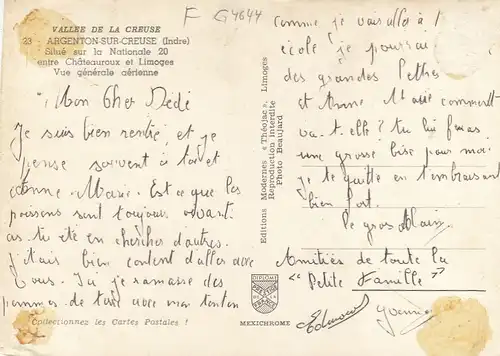 F G4644
VALLÉE DE LA CREUSE
23 - ARGENTON-SUR-CREUSE (Indre)
Situé sur la Nationale 20
entre Châteauroux et Limoges
Vue générale aérienne
Mon Cher Dédé
Je suis bien rentré, et je
pense souvent à toi et
Anne-Marie. Est ce que les
poissons sont toujours vivant
as. tu été en chercher d'autres.
j'étais bien content d'aller avec
vous. Ici je ramasse des
pommes de terre avec mon tonton
Collectionnez les Cartes Postales !
Editions Modernes « Théojac », Limoges
Reproduction interdite
Photo Beaujard
DIPLOME
MEXICHROME
comme je vais aller à l'
école je pourrai
des grandes lettres
et Anne Marie comment
va. t. elle ? tu lui feras
une grosse bise pour moi
je te quitte en t'embrassant
bien fort.
le gros Alain
Amitiés de toute la
"Petite Famille"
Edmond
Yvonne